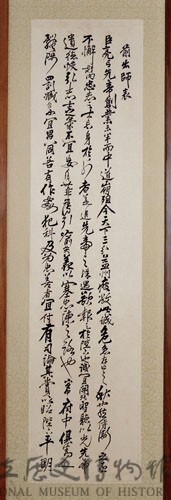 前出師表
臣亮言先帝創業未半而中道崩殂今天下三分益州疲敝此誠危急存亡之秋也然侍衛之臣
不懈於內忠志之士忘身於外者蓋追先帝之殊遇欲報之於陛下也誠宜開張聖聽以光先帝
遺德恢弘志士之氣不宜妄自菲薄引喻失義以塞忠諫之路也宮中府中俱為一
體陟罰臧否不宜異同若有作奸犯科及為忠善者宜付有司論其刑賞以昭陛下平明
立歷史博物館
ONAL MUSEUM OF HISTOR